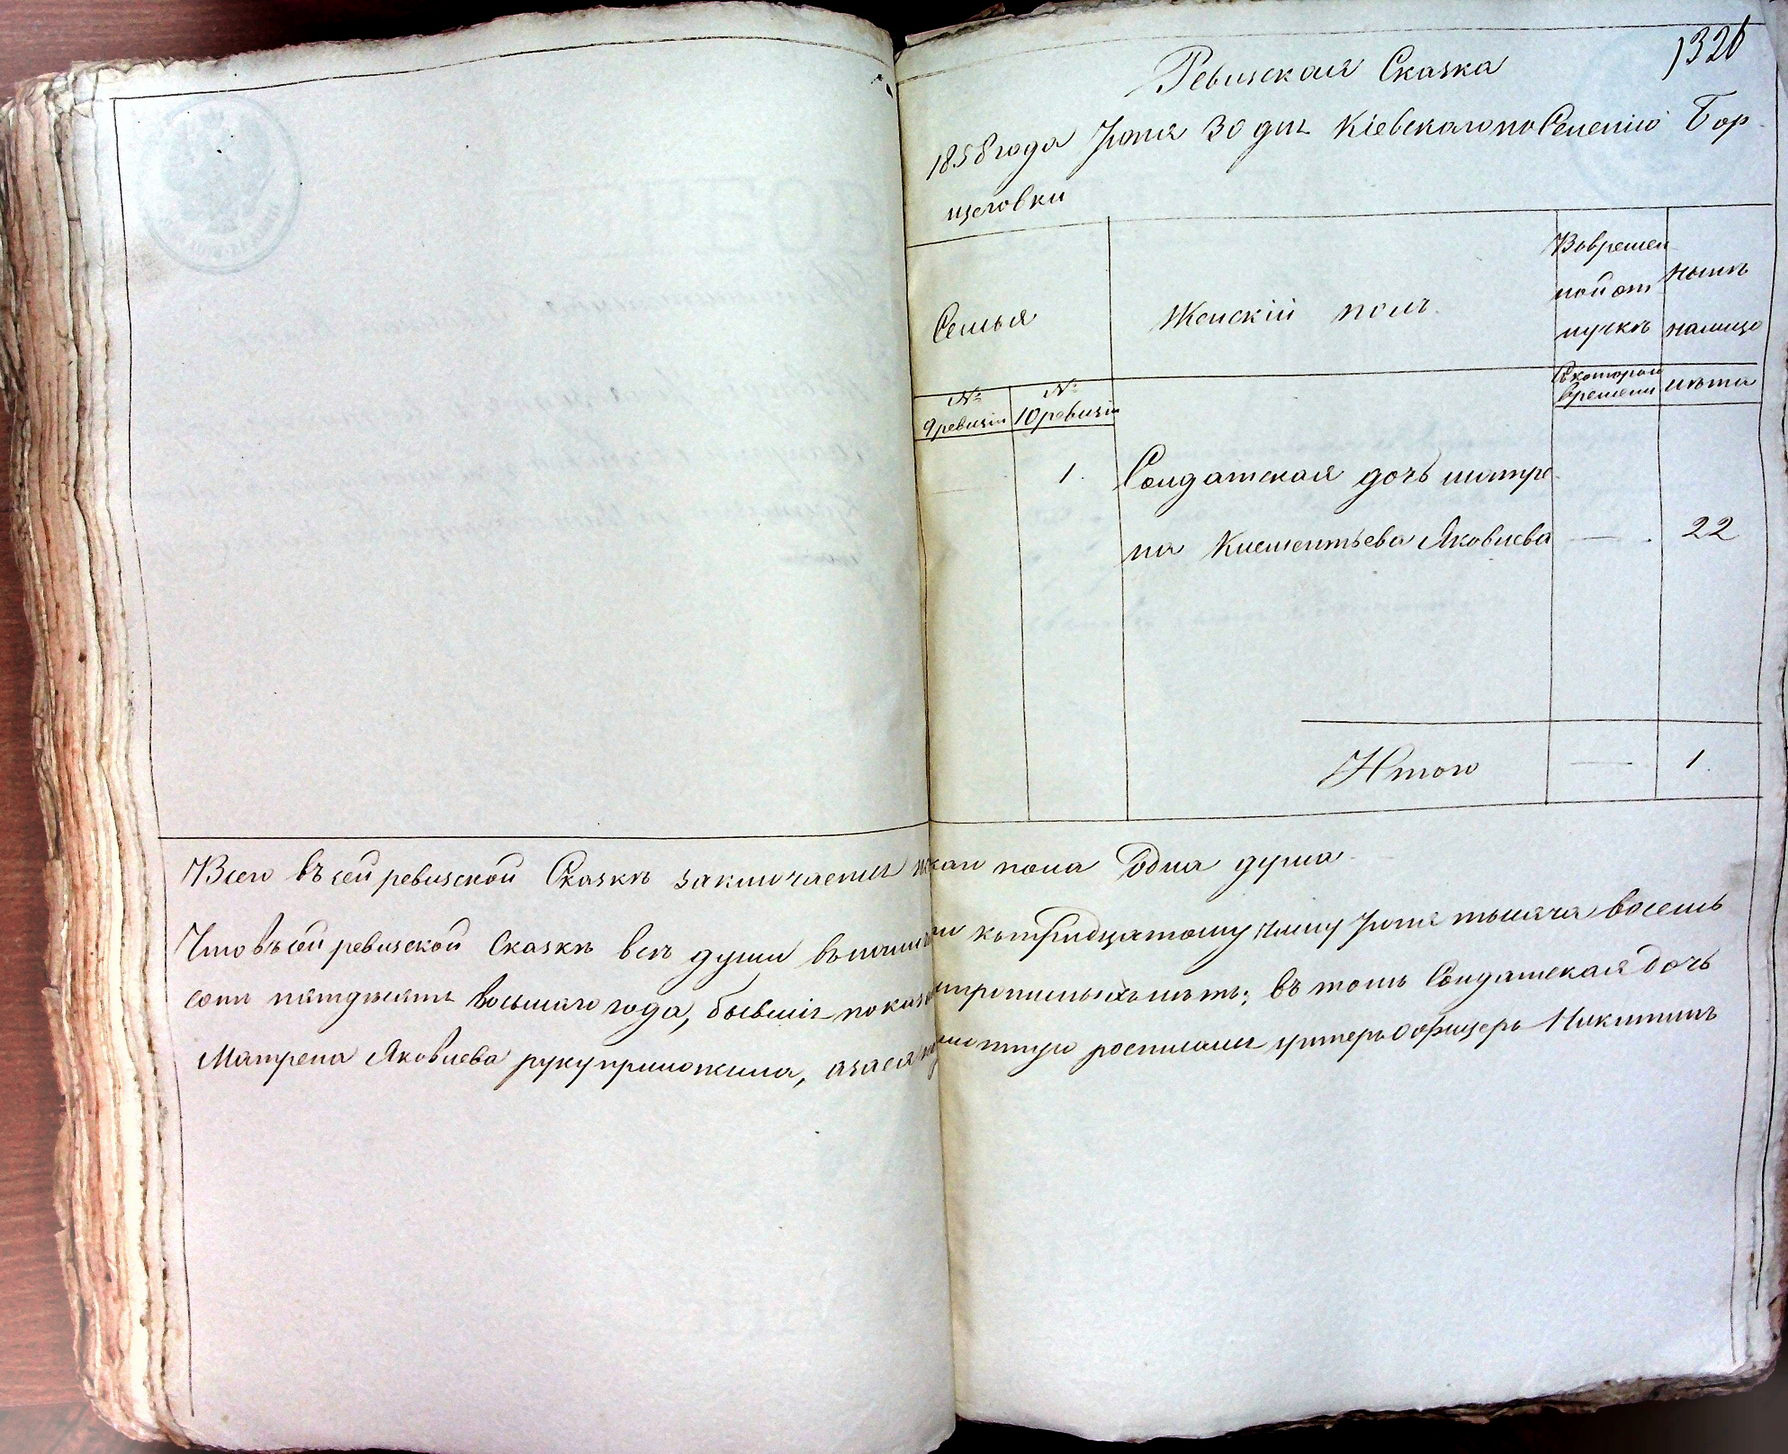 1326
Ревизская Сказка
1858 года Іюня 30 дня Кіевскаго поселенію Бор
щеговки
Семья
Женскій полъ.
Во времен
ной от
лучкѣ
Нынѣ
налицо
№ 9 ревизіи
№ 10 ревизіи
Съ котораго
времени
Лѣта
1. Солдатская дочь Матре
на Клементьева Яковлева — . 22
Итого — 1.
Всего въ сей ревизской Сказкѣ заключается жскаго пола Одна душа
Что въ сей ревизской Сказкѣ всѣ души въ наличности къ тридцатому числу Іюня тысяча восемь
сотъ пятдесятъ восьмаго года, бывшіе показаны, въ томъ Солдатская дочь
Матрена Яковлева руку приложила, а за ея росписался унтеръ Офицеръ Никитинъ